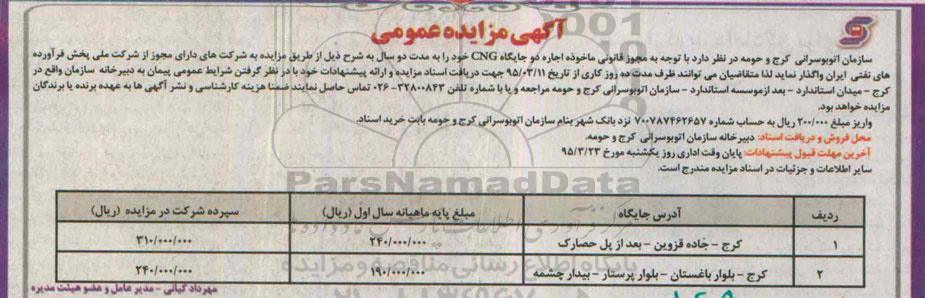 آگهی مزایده عمومی
سازمان اتوبوسرانی کرج و حومه در نظر دارد با توجه به مجوز قانونی ماخوذه اجاره دو جایگاه CNG خود را به مدت دو سال به شرح ذیل از طریق مزایده به شرکت های دارای مجوز از شرکت ملی پخش فرآورده
های نفتی ایران واگذار نماید لذا متقاضیان می توانند ظرف مدت ده روز کاری از تاریخ ۹۵/۰۳/۱۱ جهت دریافت اسناد مزایده و ارائه پیشنهادات خود با در نظر گرفتن شرایط عمومی پیمان به دبیرخانه سازمان واقع در
کرج - میدان استاندارد - بعد ازموسسه استاندارد - سازمان اتوبوسرانی کرج و حومه مراجعه و یا با شماره تلفن ۳۲۸۰۰۸۴۳-۰۲۶ تماس حاصل نمایند ضمنا هزینه کارشناسی و نشر آگهی ها به عهده برنده یا برندگان
مزایده خواهد بود.
واریز مبلغ ۲۰۰/۰۰۰ ریال به حساب شماره ۷۰۰۷۸۷۴۶۲۶۵۷ نزد بانک شهر بنام سازمان اتوبوسرانی کرج و حومه بابت خرید اسناد.
محل فروش و دریافت اسناد: دبیرخانه سازمان اتوبوسرانی کرج و حومه.
آخرین مهلت قبول پیشنهادات: پایان وقت اداری روز یکشنبه مورخ ۹۵/۳/۲۳
سایر اطلاعات و جزئیات در اسناد مزایده مندرج است.
ParsNamadData
ردیف آدرس جایگاه مبلغ پایه ماهیانه سال اول (ریال) سپرده شرکت در مزایده (ریال)
۱ کرج - جاده قزوین - بعد از پل حصارک ۲۴۰/۰۰۰/۰۰۰ ۳۱۰/۰۰۰/۰۰۰
۲ کرج - بلوار باغستان - بلوار پرستار - بیدار چشمه ۱۹۰/۰۰۰/۰۰۰ ۲۴۰/۰۰۰/۰۰۰
پایگاه اطلاع رسانی مناقصه و مزایده
مهرداد کیانی - مدیر عامل و عضو هیئت مدیره